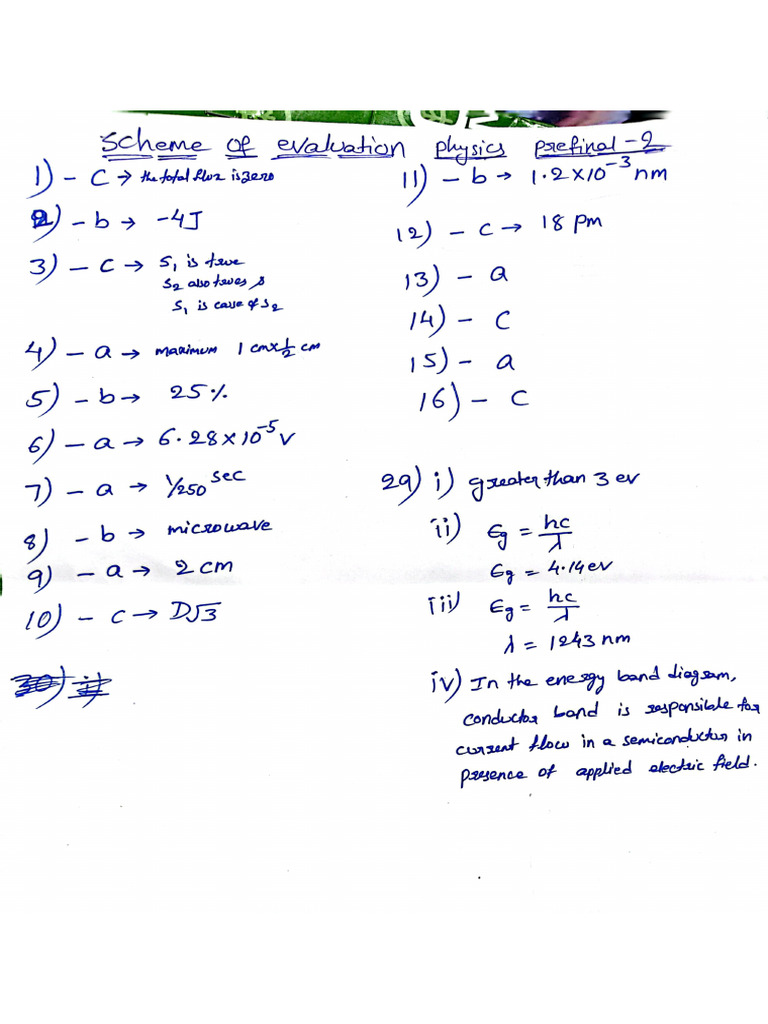 Scheme of evaluation physics prefinal-2
1) - C → the total flux is zero
2) - b → -4J
3) - C → S₁ is true
S₂ also trues
S₁ is case of S₂
4) - a → maximum 1 cm x 1/2 cm
5) - b → 25%
6) - a → 6.28 x 10⁻⁵ V
7) - a → 1/250 sec
8) - b → microwave
9) - a → 2 cm
10) - C → D√3
30) i)
11) - b → 1.2 x 10⁻³ nm
12) - C → 18 pm
13) - a
14) - C
15) - a
16) - C
29) i) greater than 3 ev
ii) Eg = hc/λ
Eg = 4.14 ev
iii) Eg = hc/λ
λ = 1243 nm
iv) In the energy band diagram,
conductor band is responsible for
current flow in a semiconductor in
presence of applied electric field.